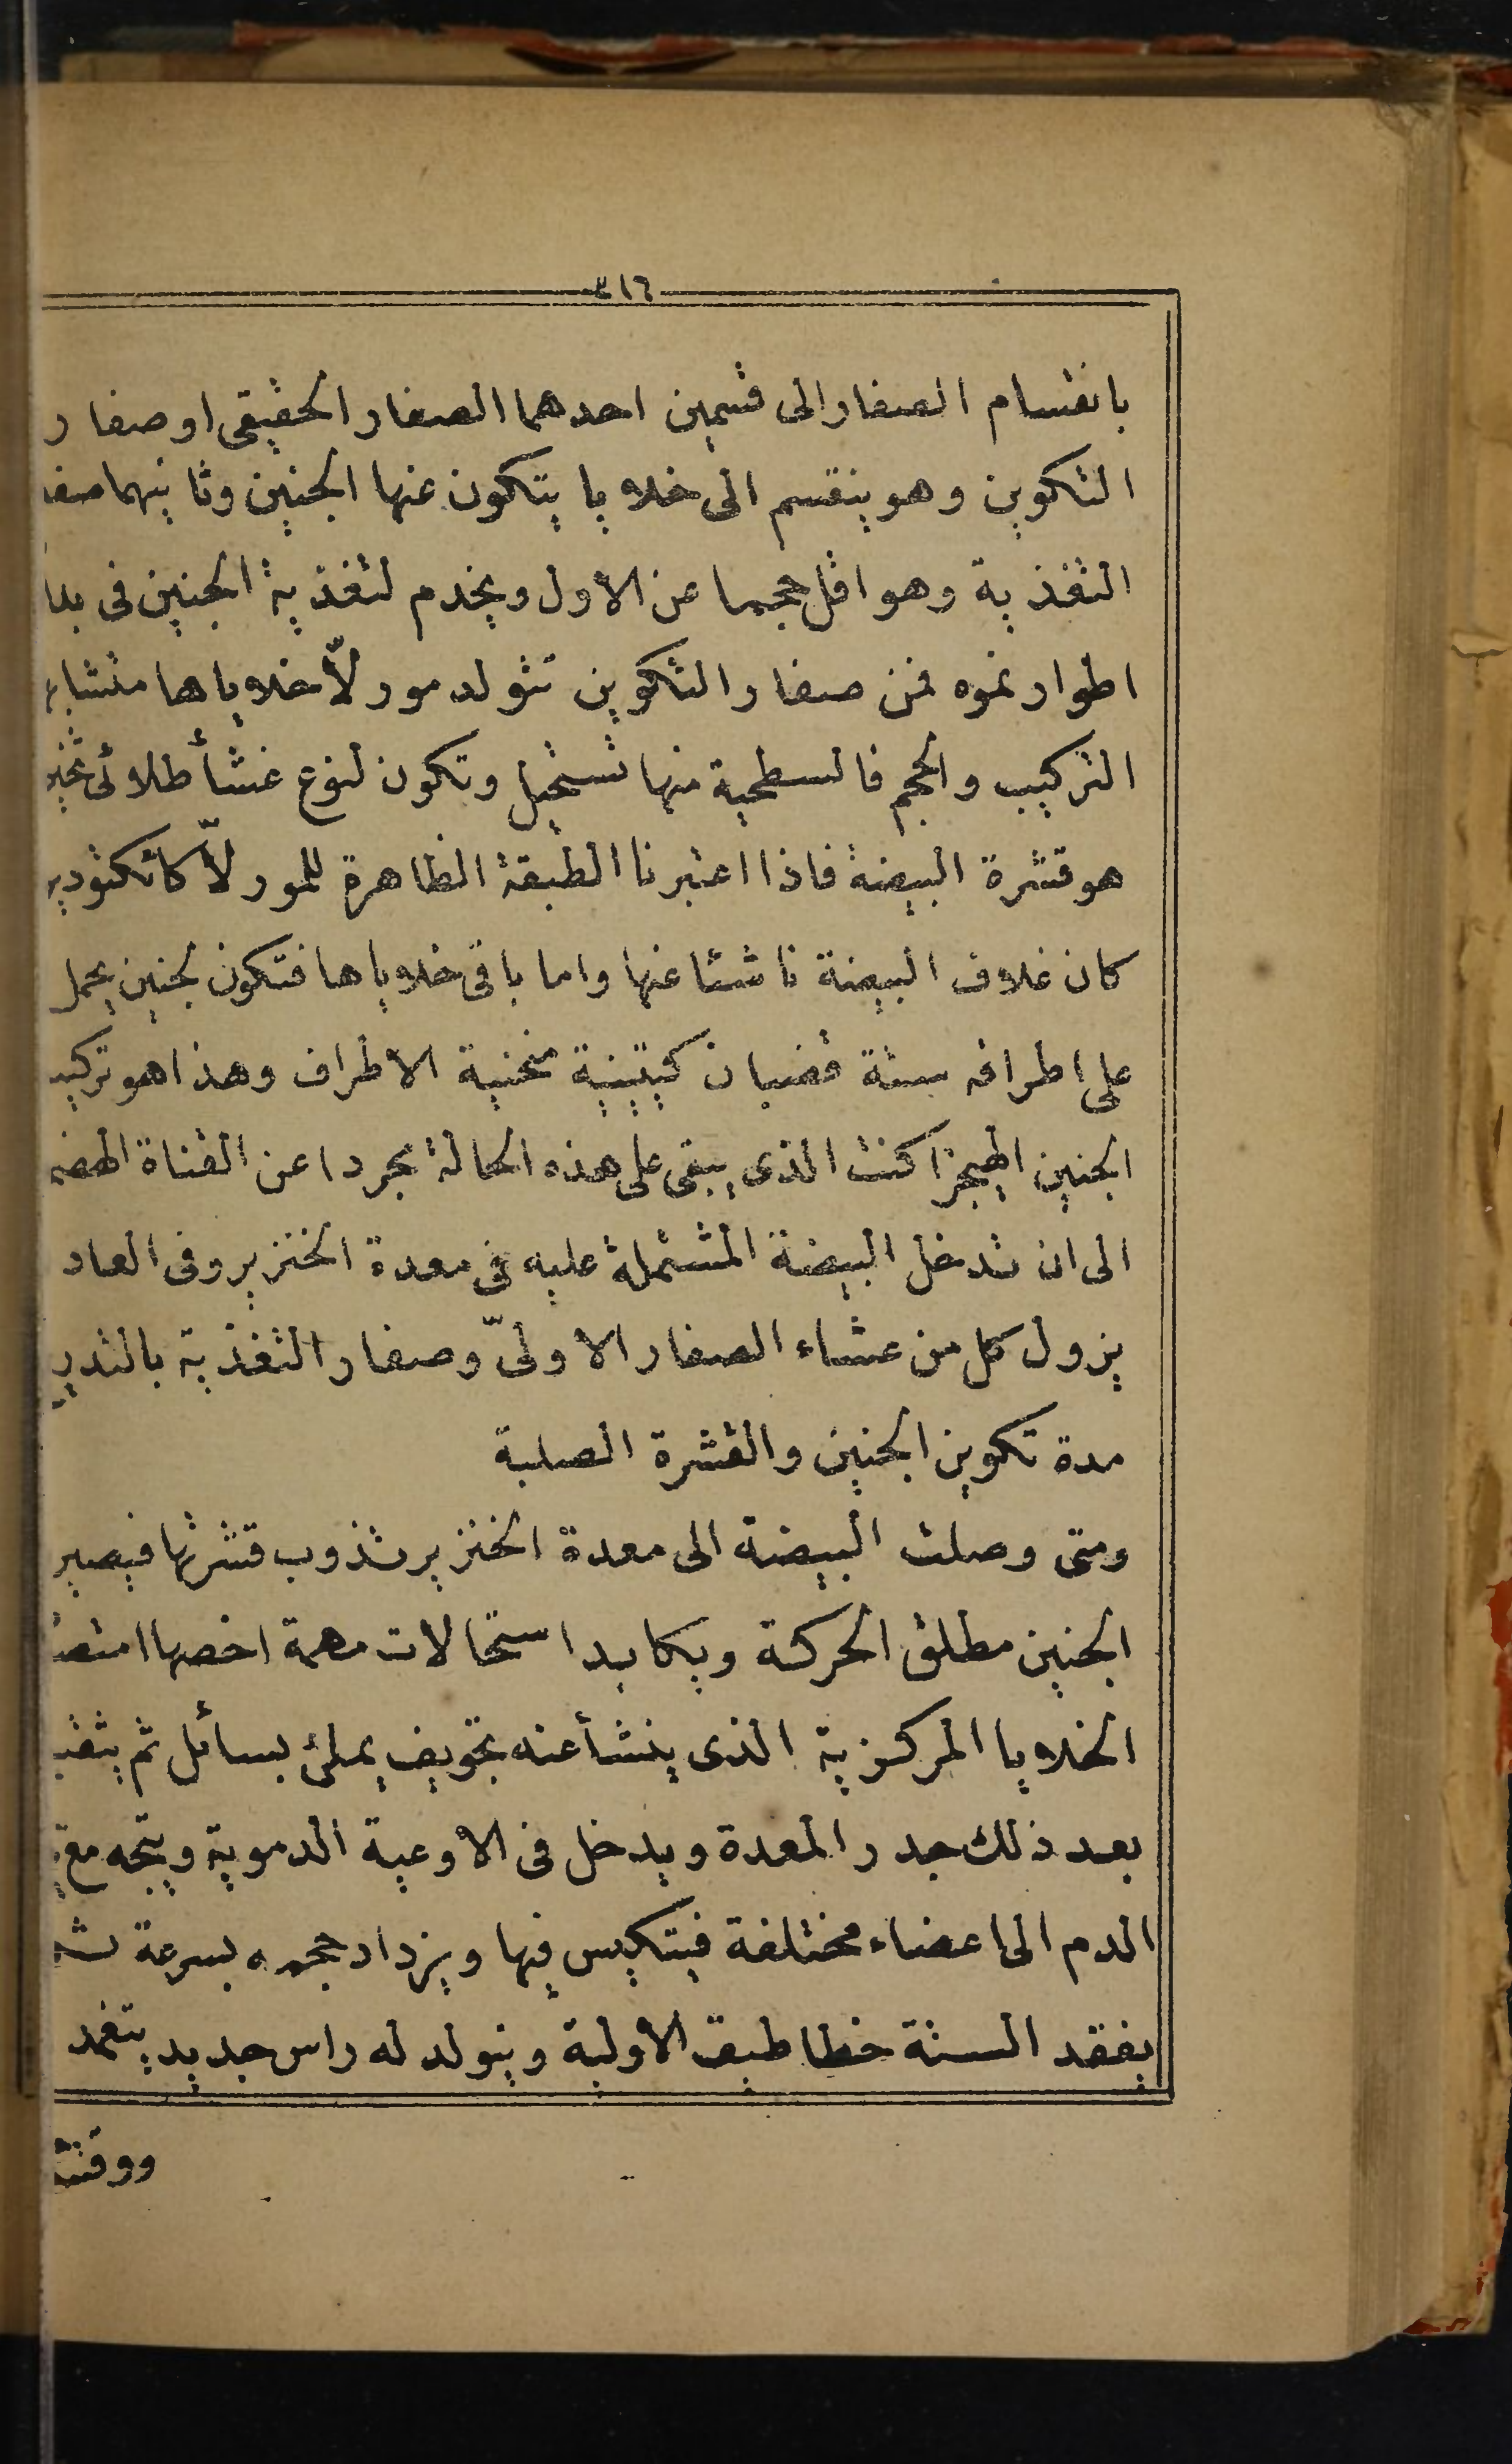 ٣١٦
بانقسام الصفار الى قسمين احدهما الصفار الحقيقى او صفار
التكوين وهو ينقسم الى خلايا يتكون عنها الجنين وثانيهما صفا
التغذية وهو اقل حجما عن الاول ويخدم لتغذية الجنين فى
اطوار نموه فمن صفار التكوين تتولد مورلّا خلاياها متشابه
التركيب والحجم فالسطحية منها تستحيل وتكون لنوع غشأ طلائى
هو قشرة البيضة فاذا اعتبرنا الطبقة الظاهرة للمورلّا كاتكتودير
كان غلاف البيضة ناشئا عنها واما باقى خلاياها فتكون لجنين يحمل
على اطرافه ستة قضبان كيتينية منحنية الاطراف وهذا هو تركيب
الجنين الهيجزاكنت الذى يبقى على هذه الحالة مجردا عن القناة الهضم
الى ان تدخل البيضة المشتملة عليه فى معدة الخنزير وفى العاد
يزول كل من عشاء الصفار الاولىّ وصفار التغذية بالتدر
مدة تكوين الجنين والقشرة الصلبة
ومتى وصلت البيضة الى معدة الخنزير تذوب قشرتها فيصير
الجنين مطلق الحركة ويكابد استحالات مهمة اخصها امتصا
الخلايا المركزية الذى ينشأ عنه تجويف يملئ بسائل ثم يثقب
بعد ذلك جدر المعدة ويدخل فى الاوعية الدموية ويتجه مع
الدم الى اعضاء مختلفة فيتكيس فيها ويزداد حجمه بسرعة
يفقد الستة خطاطيف الأولية ويتولد له راس جديد يتغمد